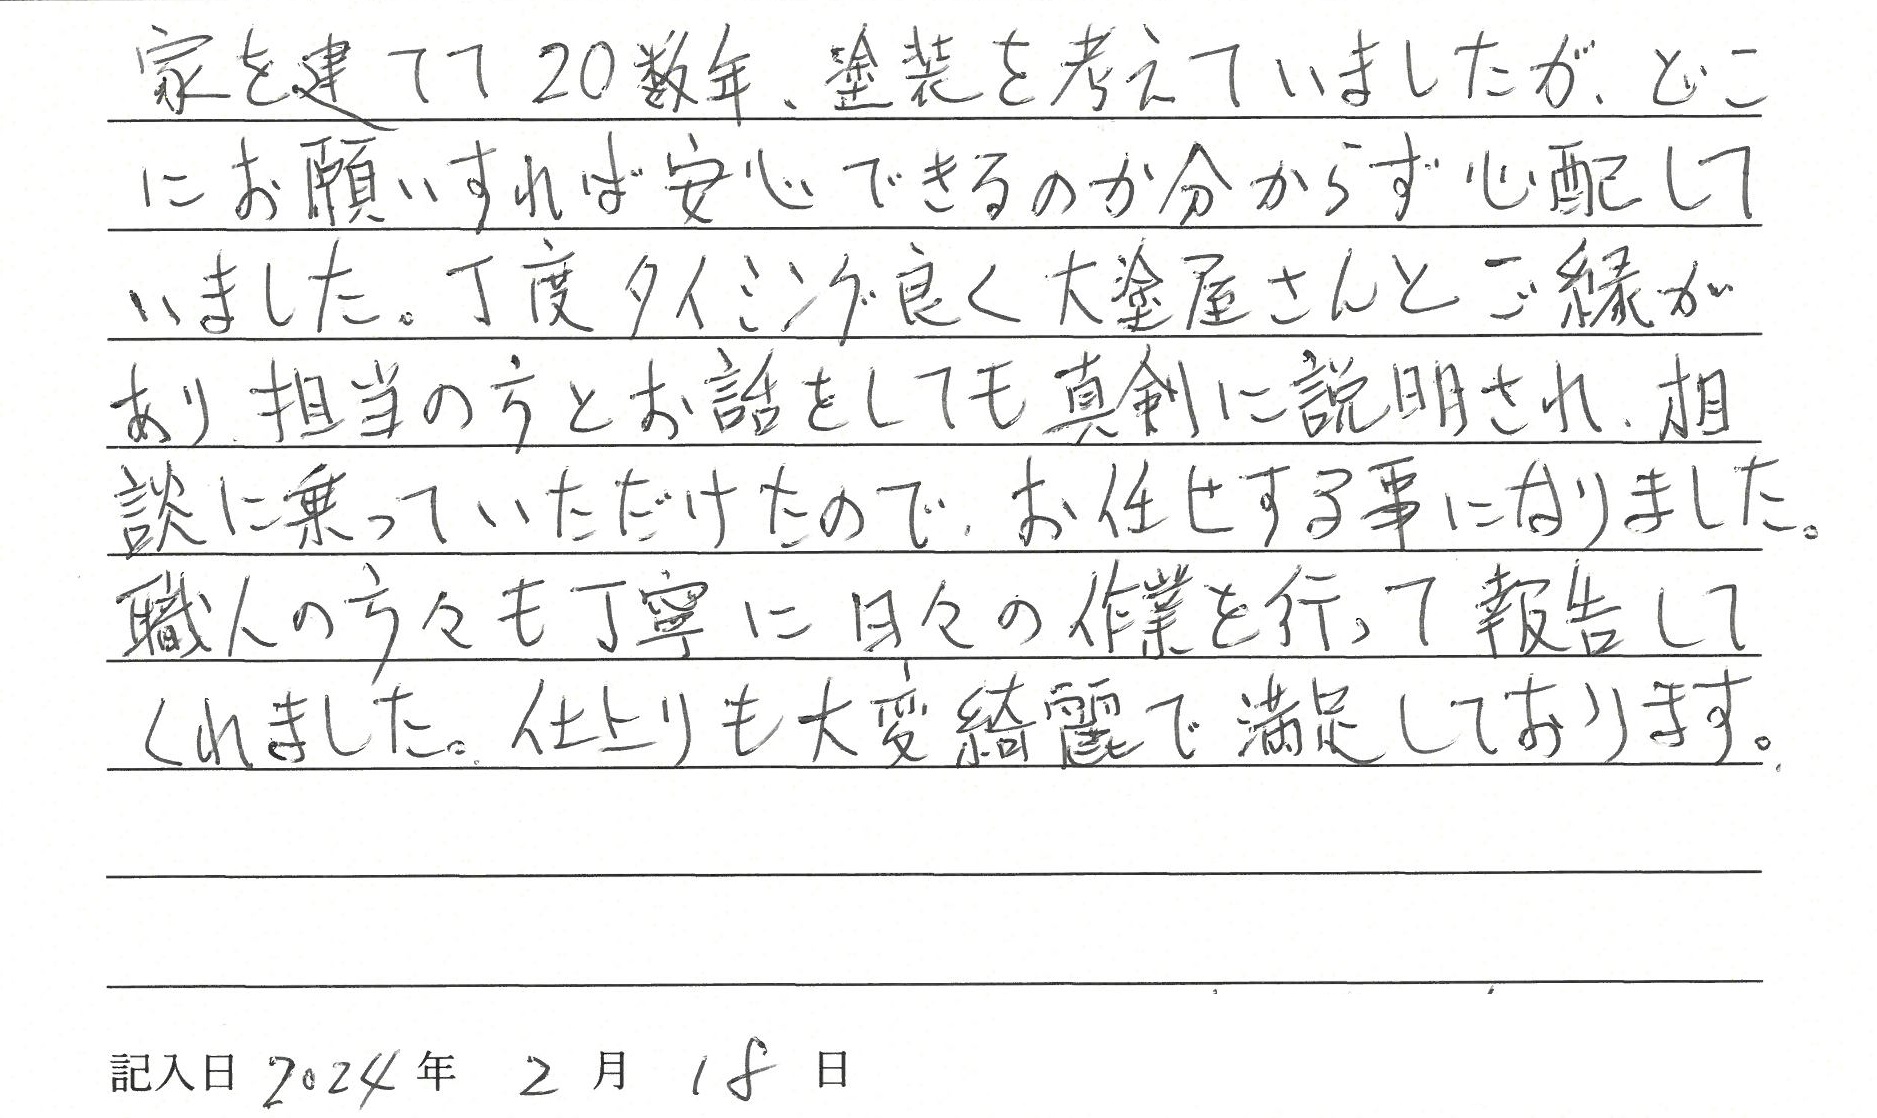 家を建てて20数年、塗装を考えていましたが、どこ
にお願いすれば安心できるのか分からず心配して
いました。丁度タイミング良く大塗屋さんとご縁が
あり、担当の方とお話をしても真剣に説明され、相
談に乗っていただけたので、お任せする事になりました。
職人の方々も丁寧に日々の作業を行って報告して
くれました。仕上りも大変綺麗で満足しております。
記入日 2024年 2月 18日